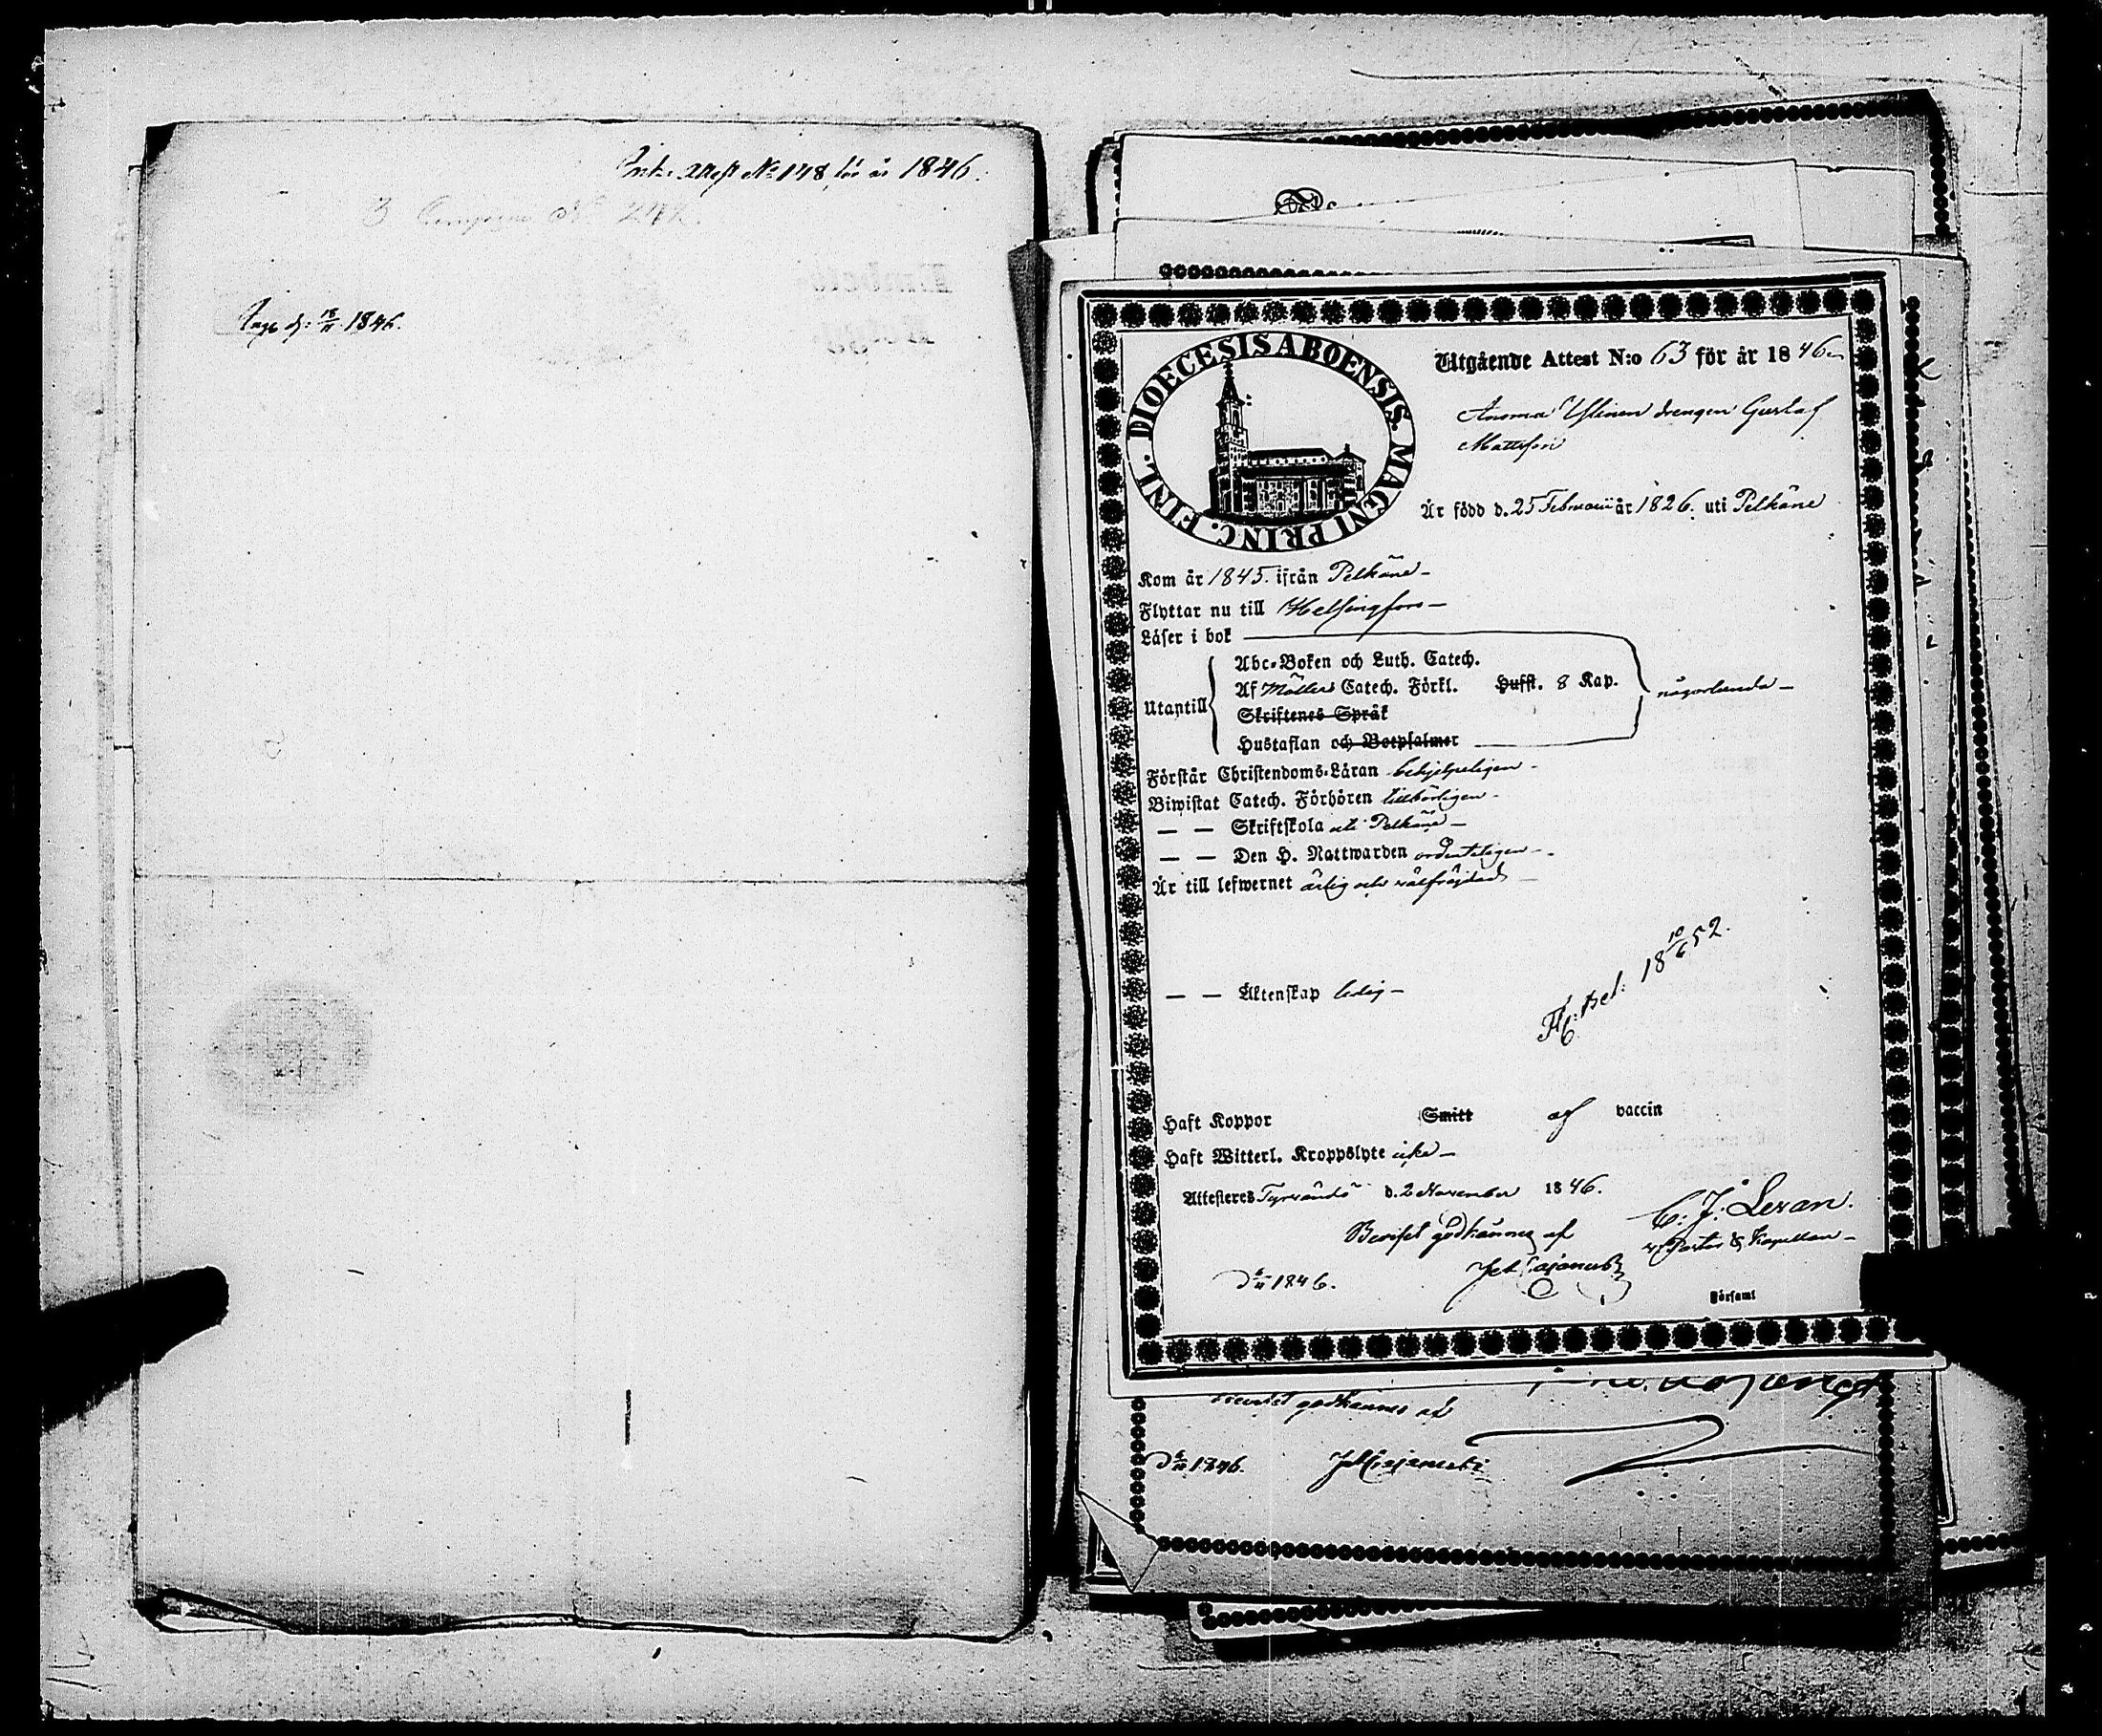 Ink. Attest No 148 för år 1846.
3 No 242.
d: 18/11 1846.
DIOECESIS ABOENSIS. MAGNI PRINC. FINL.
Utgående Attest N:o 63 för år 1846
drengen Gustaf
Mattsson
Är född d. 25 Februarii år 1826. uti Pelkäne
Kom år 1845. ifrån Pelkäne –
Flyttar nu till Helsingfors –
Läser i bok
Utantill
Abc-Boken och Luth. Catech.
Af Möllers Catech. Förkl. Hufst. 8 Kap. någorlunda –
Skriftenes Språk
Hustaflan och Botpsalmer
Förstår Christendoms-Läran behjelpeligen –
Biwistat Catech. Förhören tillbörligen –
— — Skriftskola uti Pelkäne –
— — Den H. Nattwarden ordenteligen –
Är till lefwernet ärlig och välfräjdad –
— — Äktenskap ledig –
1810/6 52.
Haft Koppor Smitt af vaccin
Haft Witterl. Kroppslyte icke –
Attesteras Tyrvändö d. 2 November 1846.
C. J. Levan.
v. Pastor & Kapellan –
Beviset godkännes af
d 6/11 1846.
Joh Cajanus
Församl
Beviset godkännes af
d 6/11 1846.